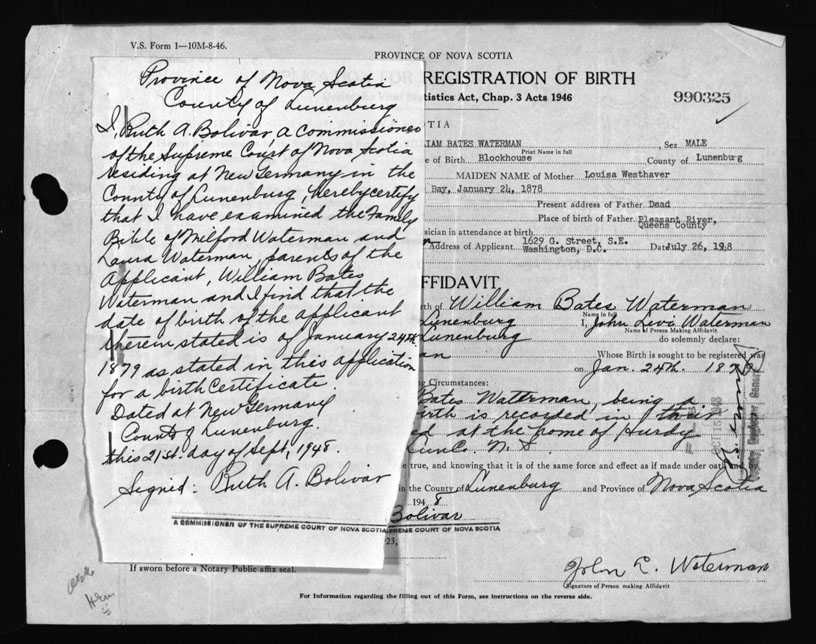 V.S. Form 1—10M-8-46.
PROVINCE OF NOVA SCOTIA
REGISTRATION OF BIRTH
tistics Act, Chap. 3 Acts 1946
990325
Province of Nova Scotia
County of Lunenburg
I, Ruth A. Bolivar, a Commissioner
of the Supreme Court of Nova Scotia
residing at New Germany in the
County of Lunenburg, hereby certify
that I have examined the Family
Bible of Milford Waterman and
Laura Waterman, parents of the
Applicant, William Bates
Waterman and I find that the
date of birth of the applicant
therein stated is of January 24th.
1879 as stated in this application
for a birth certificate.
Dated at New Germany
County of Lunenburg.
this 21st. day of Sept, 1948.
Signed: Ruth A. Bolivar
A COMMISSIONER OF THE SUPREME COURT OF NOVA SCOTIA
OTIA
LIAM BATES WATERMAN, Sex MALE
Print Name in full
e of Birth Blockhouse County of Lunenburg
MAIDEN NAME of Mother Louisa Westhaver
Bay, January 24, 1878
Present address of Father Dead
Place of birth of Father Pleasant River,
Queens County
sician in attendance at birth
Address of Applicant 1629 G. Street, S.E.
Washington, D.C. Date July 26, 19 8
AFFIDAVIT
rth of William Bates Waterman
Name in full
Lunenburg I, John Levi Waterman
Name of Person Making Affidavit
Lunenburg do solemnly declare:
an Whose Birth is sought to be registered was
on Jan. 24th. 187
ng Circumstances:
Bates Waterman, being a
irth is recorded in their
d at the home of Hurdy
Lun Co. N. S.
e true, and knowing that it is of the same force and effect as if made under oath
in the County of Lunenburg and Province of Nova Scotia
194 8
Bolivar
PREME COURT OF NOVA SCOTIA
23,
If sworn before a Notary Public affix seal.
John L. Waterman
Signature of Person making Affidavit
For Information regarding the filling out of this Form, see instructions on the reverse side.